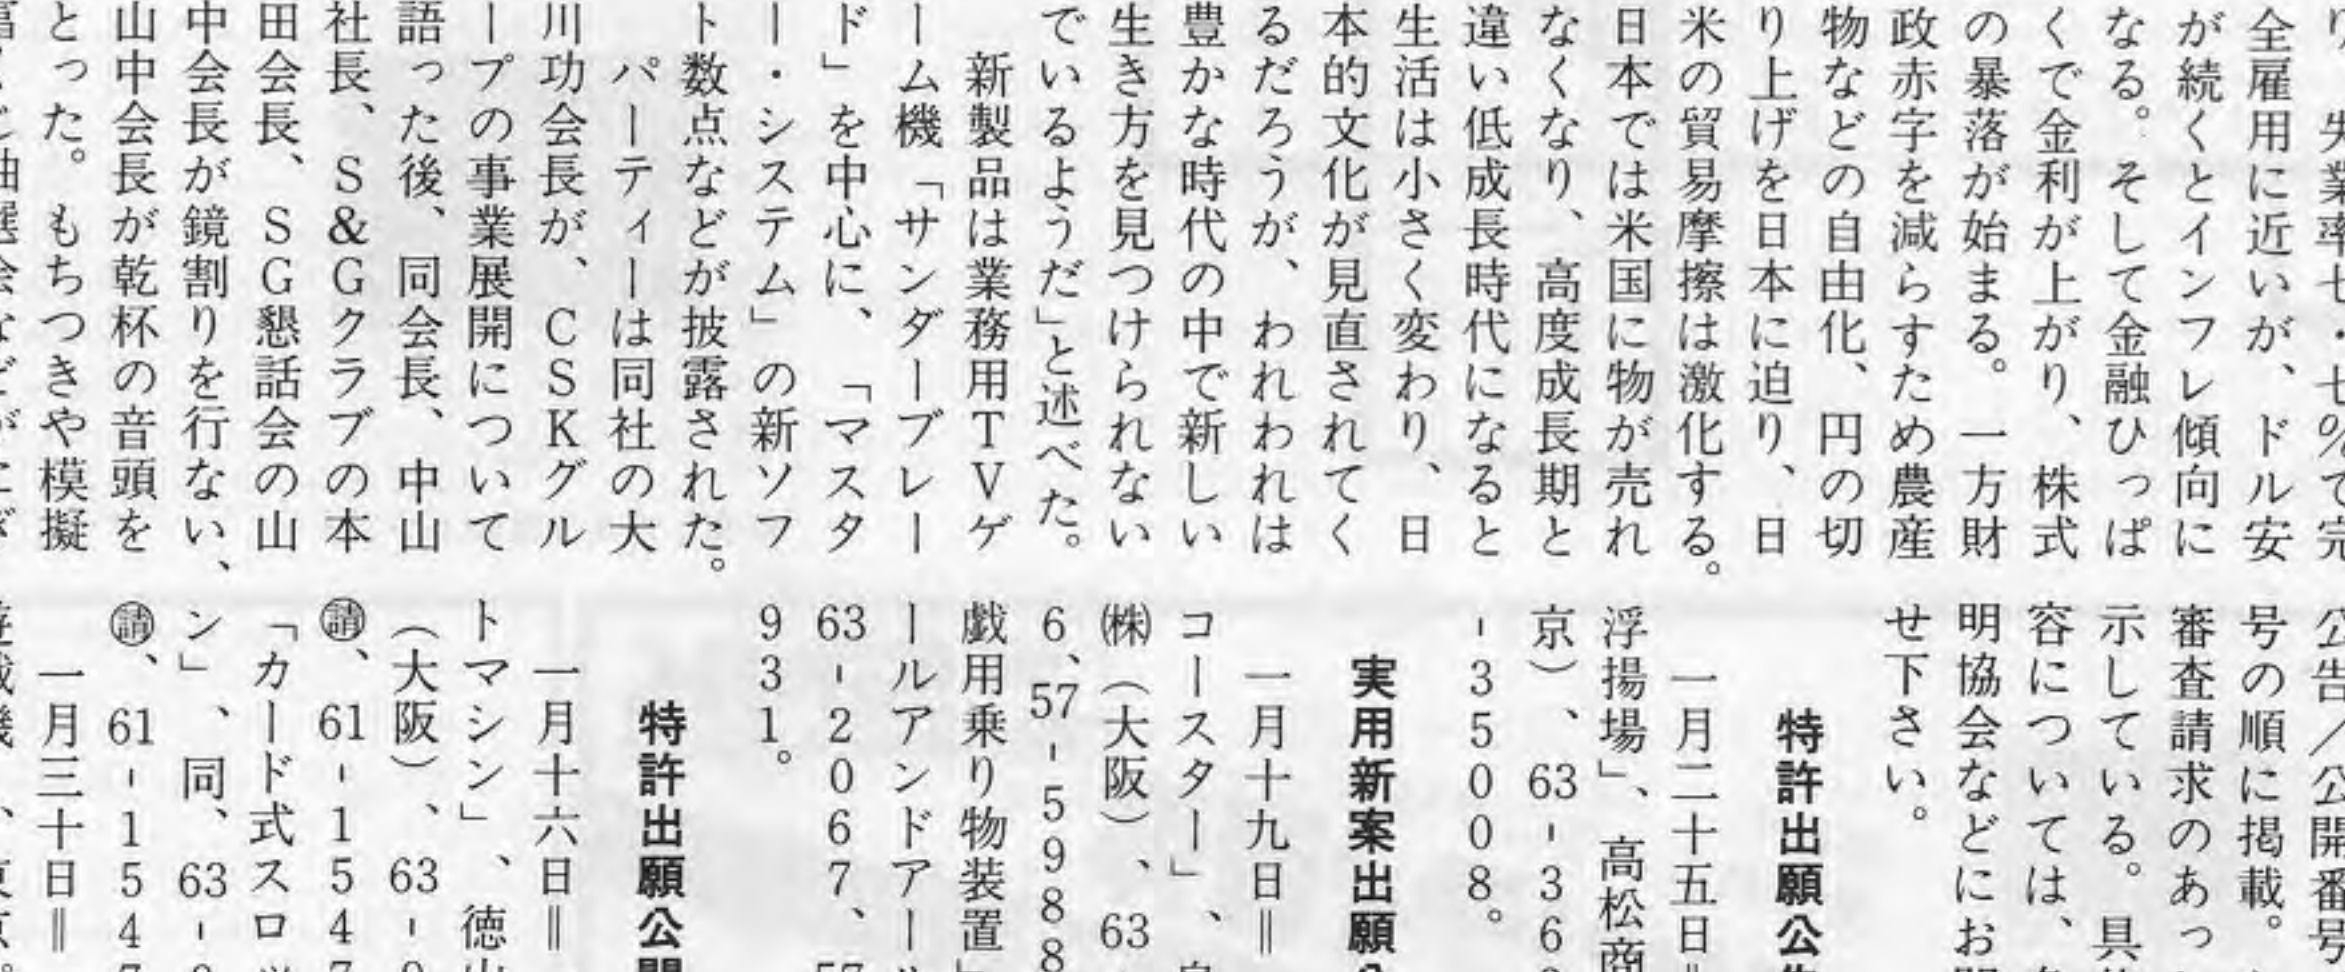 り、失業率七・七%で完
全雇用に近いが、ドル安
が続くとインフレ傾向に
なる。そして金融ひっぱ
くで金利が上がり、株式
の暴落が始まる。一方財
政赤字を減らすため農産
物などの自由化、円の切
り上げを日本に迫り、日
米の貿易摩擦は激化する。
日本では米国に物が売れ
なくなり、高度成長期と
違い低成長時代になると
生活は小さく変わり、日
本的文化が見直されてく
るだろうが、われわれは
豊かな時代の中で新しい
生き方を見つけられない
でいるようだ」と述べた。
新製品は業務用TVゲ
ーム機「サンダーブレー
ド」を中心に、「マスタ
ー・システム」の新ソフ
ト数点などが披露された。
パーティーは同社の大
川功会長が、CSKグル
ープの事業展開について
語った後、同会長、中山
社長、S&Gクラブの本
田会長、SG懇話会の山
中会長が鏡割りを行ない、
山中会長が乾杯の音頭を
とった。もちつきや模擬
公告/公開番号
号の順に掲載。
審査請求のあっ
示している。具
容については、
明協会などにお
せ下さい。
特許出願公
一月二十五日=
浮揚場」、高松商
京)、63-36
-35008。
実用新案出願
一月十九日=
コースター」、
㈱(大阪)、63
6、57-5988
戯用乗り物装置」
ールアンドアール
63-2067、57
931。
特許出願公開
一月十六日=
トマシン」、徳山
(大阪)、63-
㊟、61-154
「カード式スロッ
ン」、同、63-
㊟、61-154
一月三十日=